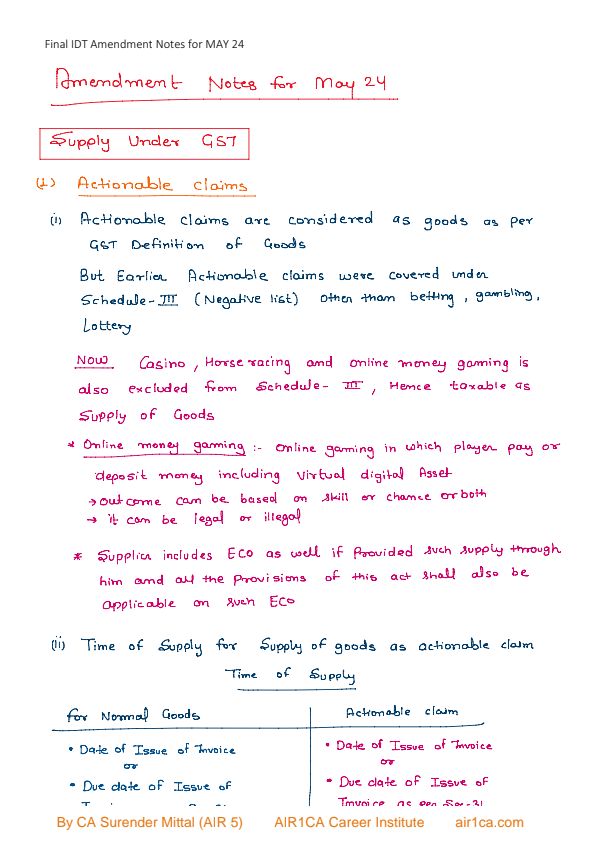 Final IDT Amendment Notes for MAY 24
Amendment Notes for May 24
Supply Under GST
(1) Actionable claims
(i) Actionable claims are considered as goods as per
GST Definition of Goods
But Earlier Actionable claims were covered under
Schedule-III (Negative list) other than betting, gambling,
Lottery
Now Casino, Horse racing and online money gaming is
also excluded from Schedule-III, Hence taxable as
Supply of Goods
* Online money gaming :- Online gaming in which player pay or
deposit money including Virtual digital Asset
→ outcome can be based on skill or chance or both
→ it can be legal or illegal
* Supplier includes ECO as well if Provided such supply through
him and all the Provisions of this act shall also be
applicable on such ECO
(ii) Time of Supply for Supply of goods as actionable claim
Time of Supply
for Normal Goods Actionable claim
• Date of Issue of Invoice • Date of Issue of Invoice
or or
• Due date of Issue of • Due date of Issue of
Invoice as per Sec-31
By CA Surender Mittal (AIR 5) AIR1CA Career Institute air1ca.com